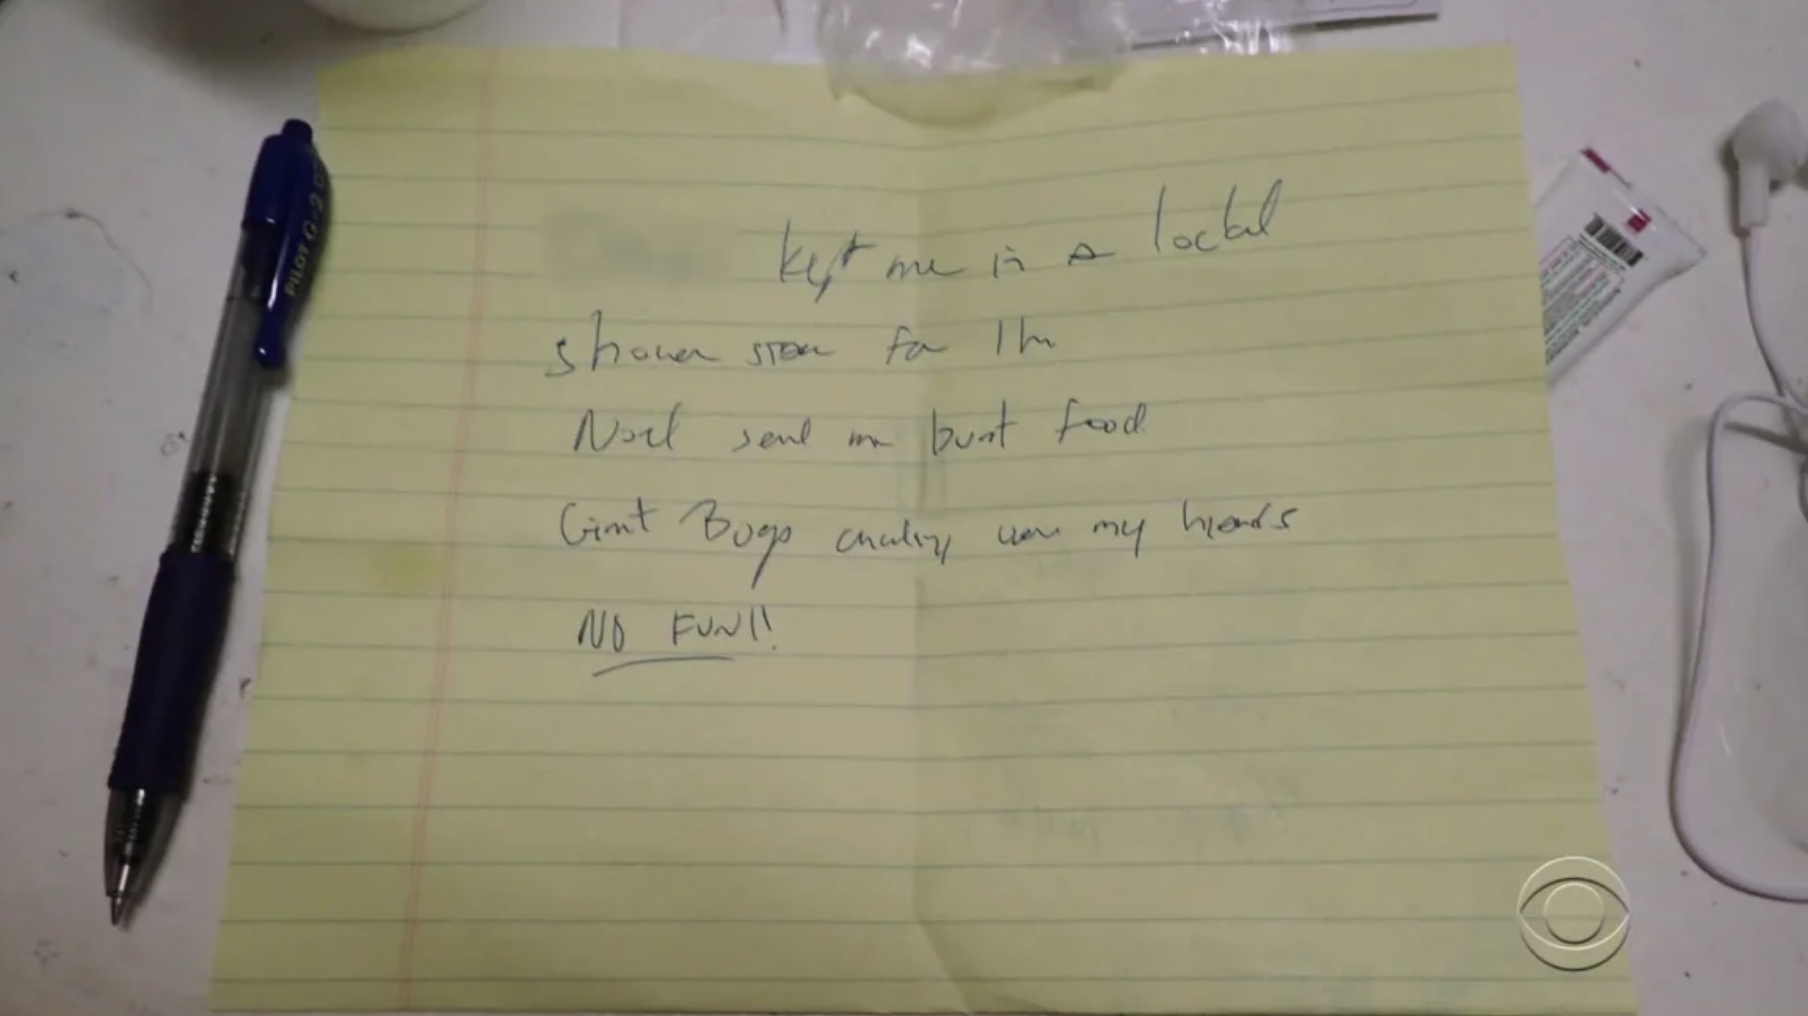 kept me in a locked
shower stall for 1 hr
Noel sent me burnt food
Giant Bugs crawling over my hands
NO FUN!!
PILOT G-2